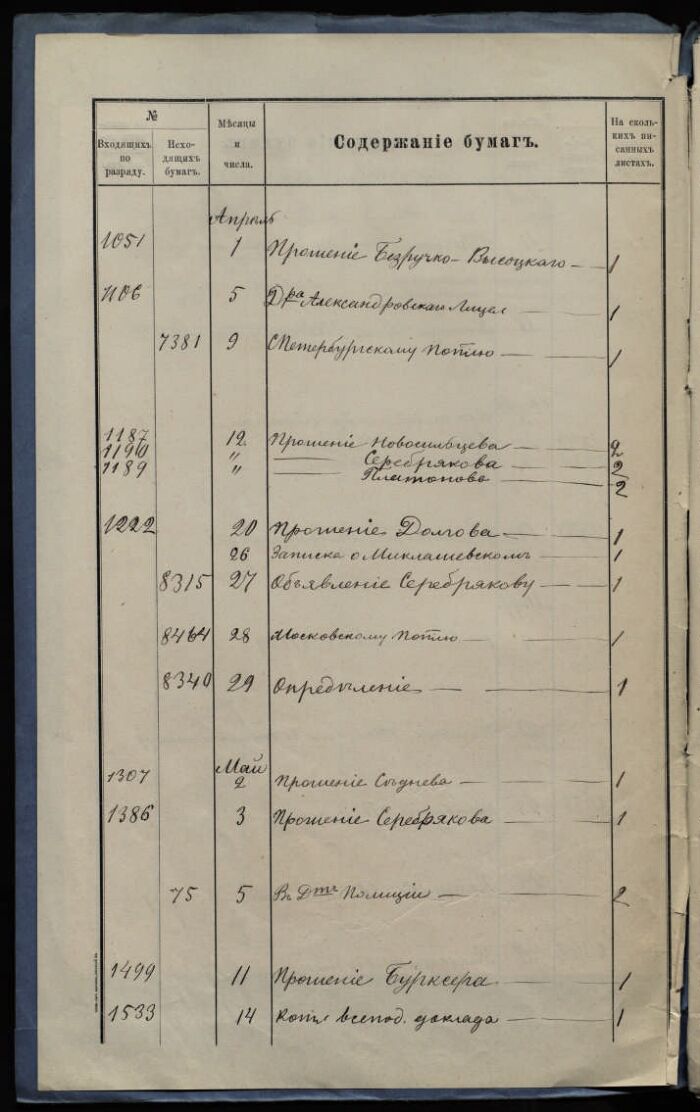 №
Входящихъ по разряду.
Исхо-
дящихъ
бумагъ.
Мѣсяцы
и
числа.
Содержаніе бумагъ.
На сколь-
кихъ пи-
санныхъ
листахъ.
Апрѣль
1051 1 Прошеніе Безручко-Высоцкаго — 1
1106 5 Д-ра Александровскаи Лицея 1
7381 9 СПетербургскому — 1
1187 12 Прошеніе Новосильцева — 2
1190 " — Серебрякова — 2
1189 " Платонова — 2
1222 20 Прошеніе Долгова — 1
26 Записка о Миклашевскомъ — 1
8315 27 Объявленіе Серебрякову — 1
8464 28 Московскому — 1
8340 29 Опредѣленіе — 1
Май
1307 2 Прошеніе — 1
1386 3 Прошеніе Серебрякова — 1
75 5 Въ Д-тъ Полиціи — 2
1499 11 Прошеніе Бурксера — 1
1533 14 всепод. доклада — 1